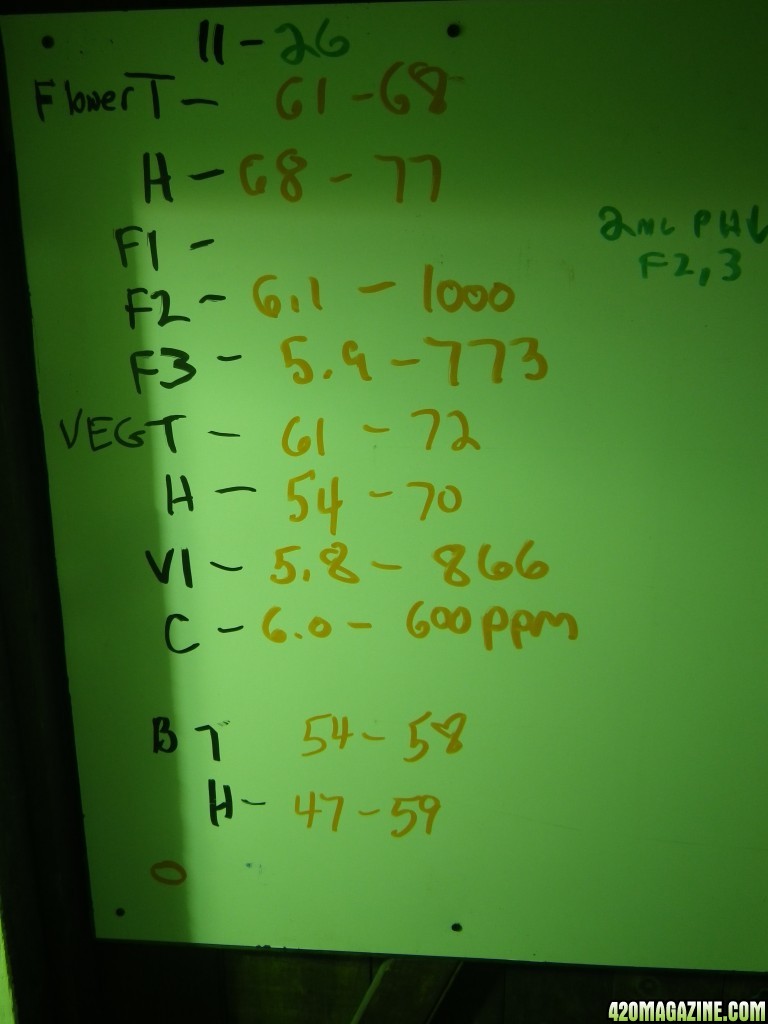 11-26
Flower T - 61-68
H - 68 - 77
2mL PH
F2,3
F1 -
F2 - 6.1 - 1000
F3 - 5.9 - 773
VEG T - 61 - 72
H - 54 - 70
V1 - 5.8 - 866
C - 6.0 - 600ppm
B T 54 - 58
H - 47 - 59
O
420MAGAZINE.COM